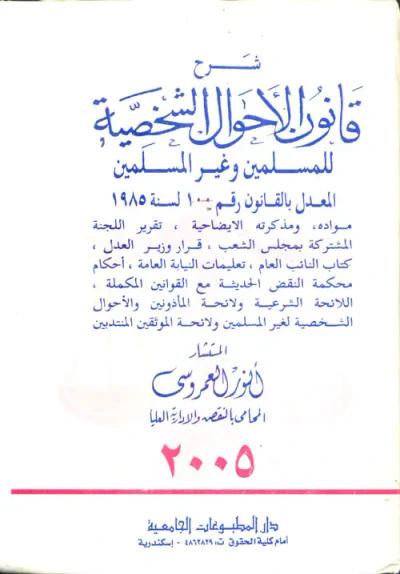 شرح
قانون الأحوال الشخصية
للمسلمين وغير المسلمين
المعدل بالقانون رقم ١٠٠ لسنة ١٩٨٥
مواده، ومذكرته الايضاحية ، تقرير اللجنة
المشتركة بمجلس الشعب ، قرار وزير العدل ،
كتاب النائب العام ، تعليمات النيابة العامة ، أحكام
محكمة النقض الحديثة مع القوانين المكملة ،
اللائحة الشرعية ولائحة المأذونين والأحوال
الشخصية لغير المسلمين ولائحة الموثقين المنتدبين
المستشار
أنور العمروسى
المحامى بالنقض والادارية العليا
٢٠٠٥
دار المطبوعات الجامعية
أمام كلية الحقوق ت: ٤٨٦٢٨٢٩ - إسكندرية